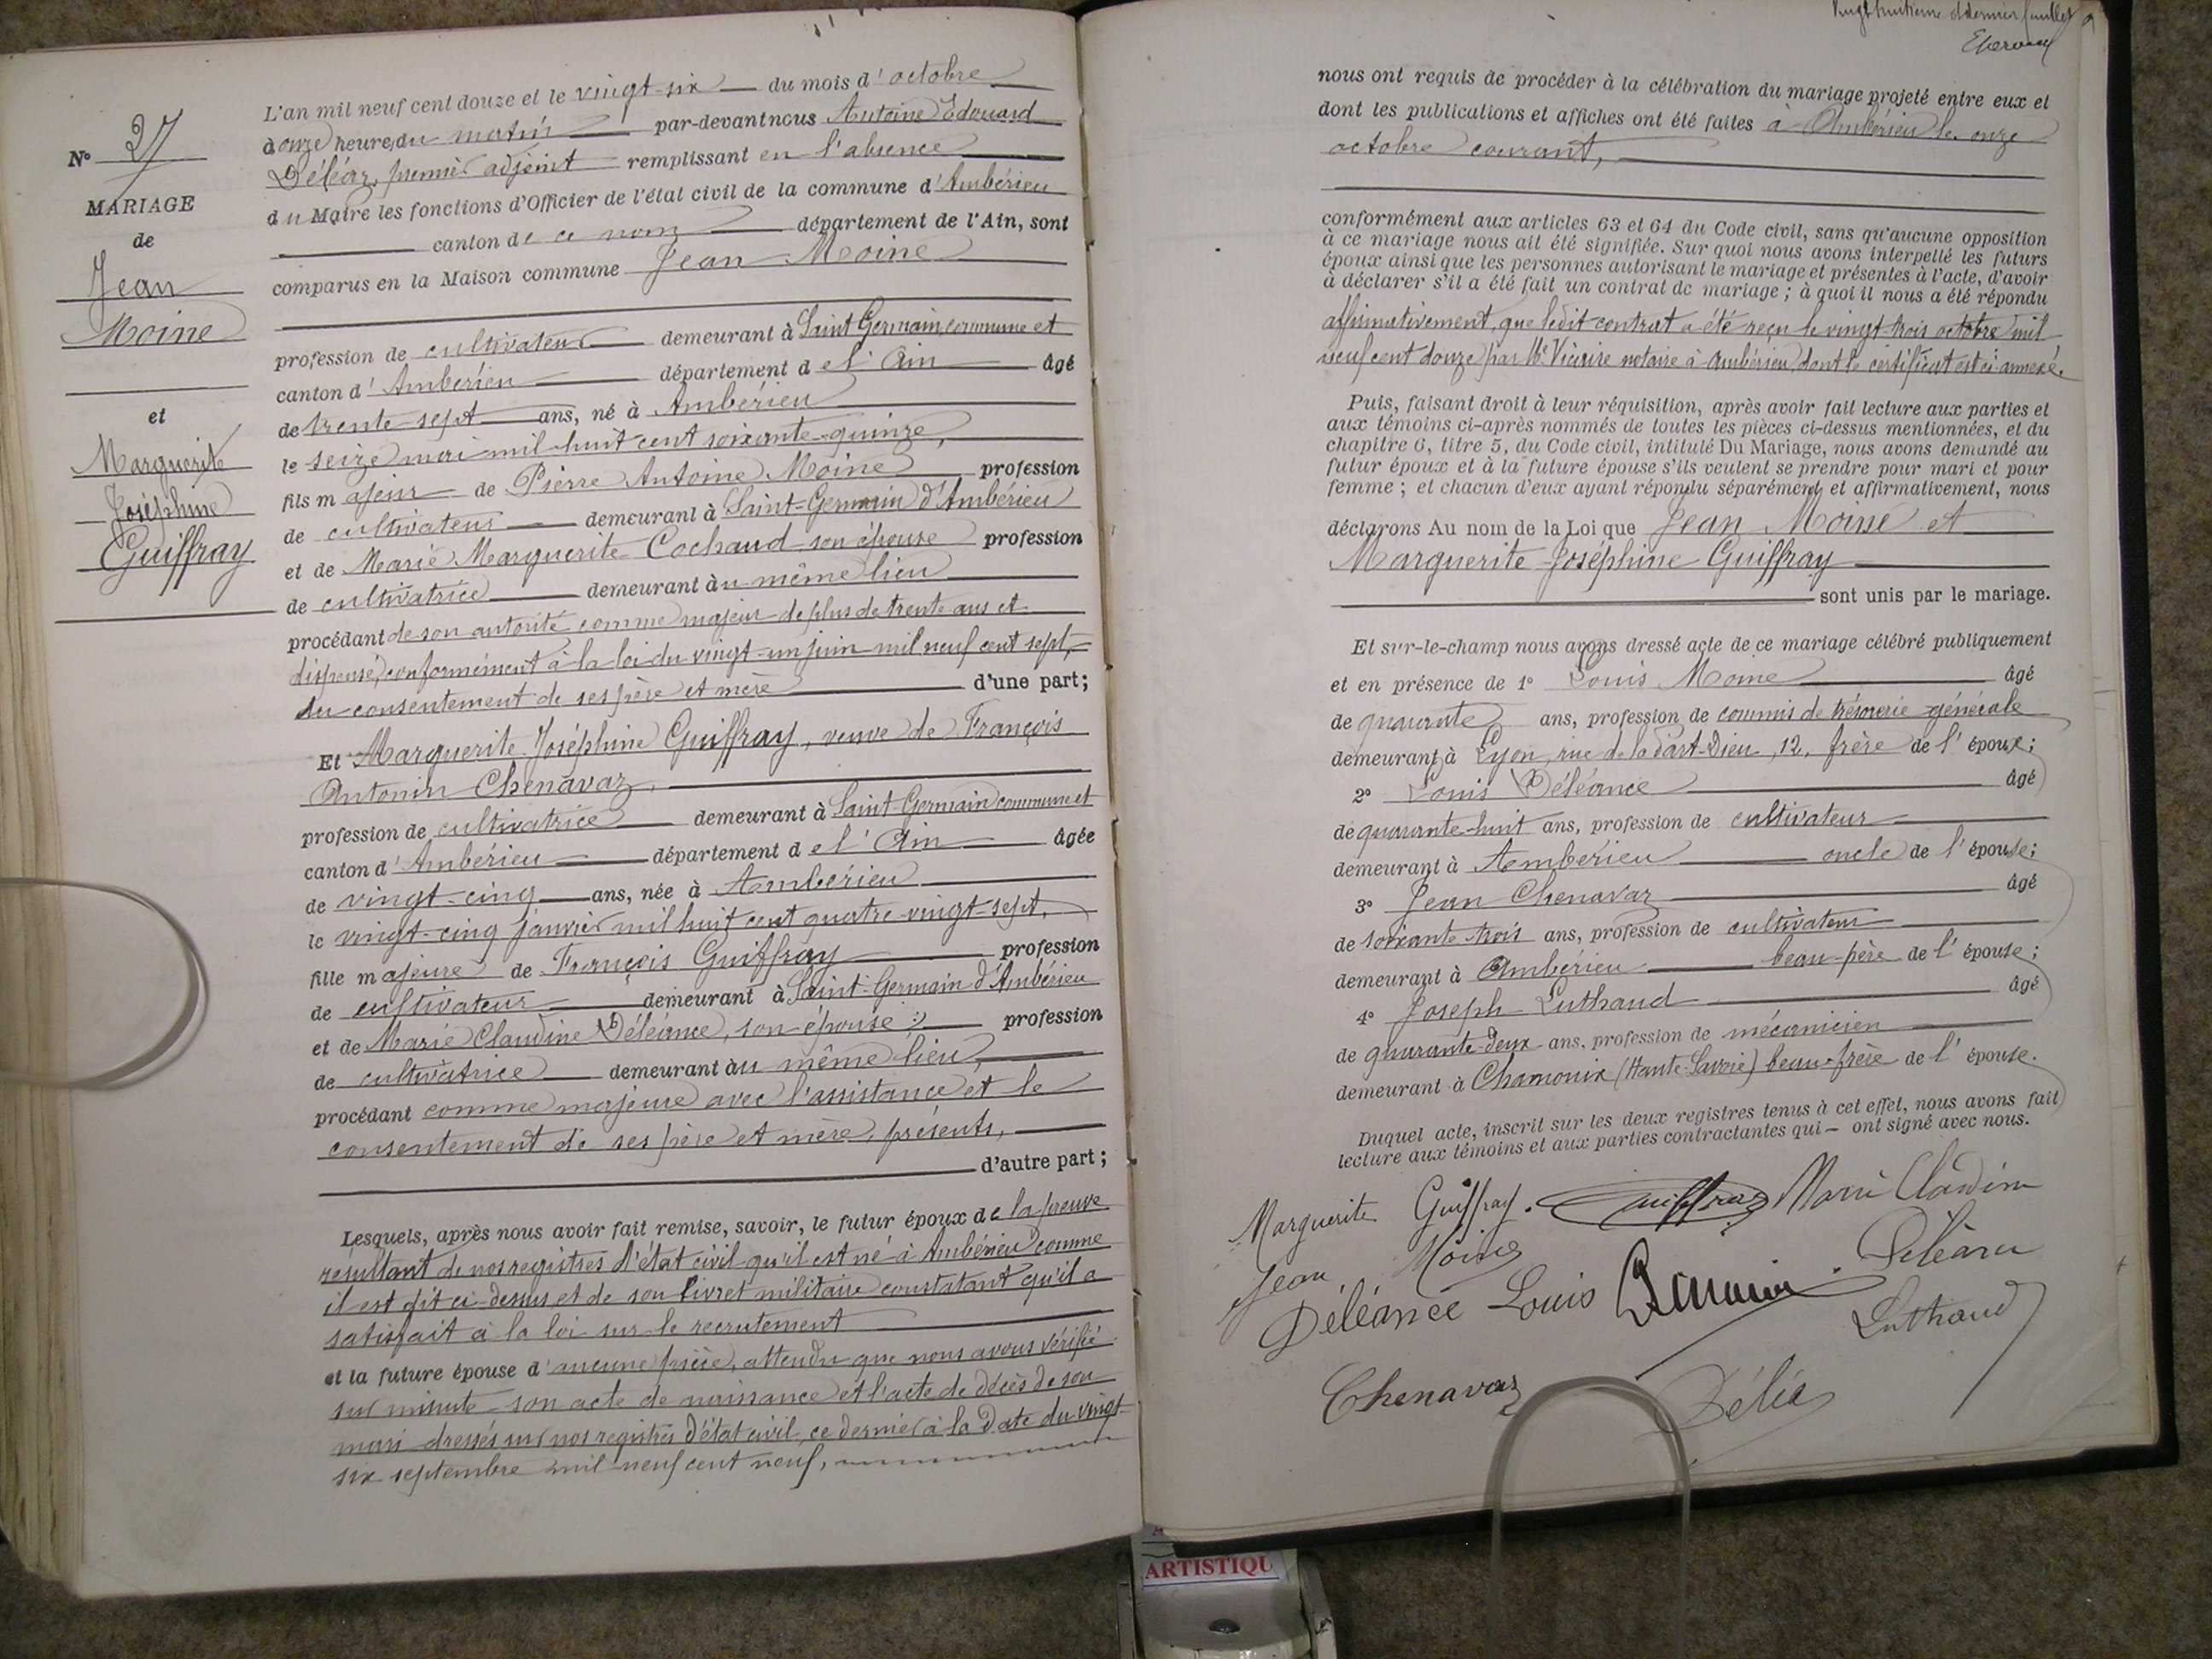 N° 27
MARIAGE
de
Jean
Moine
et
Marguerite
Joséphine
Guiffray
L'an mil neuf cent douze et le vingt-six du mois d'octobre
à onze heures du matin par-devant nous Antoine Edouard
Déléaz, premier adjoint remplissant en l'absence
du Maire les fonctions d'Officier de l'état civil de la commune d'Ambérieu
canton de ce nom département de l'Ain, sont
comparus en la Maison commune Jean Moine
profession de cultivateur demeurant à Saint Germain, commune et
canton d'Ambérieu département de l'Ain âgé
de trente-sept ans, né à Ambérieu
le seize mai mil huit cent soixante-quinze,
fils majeur de Pierre Antoine Moine profession
de cultivateur demeurant à Saint-Germain d'Ambérieu
et de Marie Marguerite Cochaud, son épouse profession
de cultivatrice demeurant au même lieu
procédant de son autorité comme majeur de plus de trente ans et
dispensé, conformément à la loi du vingt-un juin mil neuf cent sept,
du consentement de ses père et mère d'une part;
Et Marguerite Joséphine Guiffray, veuve de François
Antonin Chenavaz,
profession de cultivatrice demeurant à Saint-Germain commune et
canton d'Ambérieu département de l'Ain âgée
de vingt-cinq ans, née à Ambérieu
le vingt-cinq janvier mil huit cent quatre-vingt-sept,
fille majeure de François Guiffray profession
de cultivateur demeurant à Saint-Germain d'Ambérieu
et de Marie Claudine Déléance, son épouse profession
de cultivatrice demeurant au même lieu,
procédant comme majeure avec l'assistance et le
consentement de ses père et mère, présents,
d'autre part;
Lesquels, après nous avoir fait remise, savoir, le futur époux de la preuve
résultant de nos registres d'état civil qu'il est né à Ambérieu comme
il est dit ci-dessus et de son livret militaire constatant qu'il a
satisfait à la loi sur le recrutement
et la future épouse d'aucune pièce, attendu que nous avons vérifié
sur minute son acte de naissance et l'acte de décès de son
mari dressés sur nos registres d'état civil, ce dernier à la date du vingt-
six septembre mil neuf cent neuf,
Vingt huitième et dernier feuillet
nous ont requis de procéder à la célébration du mariage projeté entre eux et
dont les publications et affiches ont été faites à Ambérieu le onze
octobre courant,
conformément aux articles 63 et 64 du Code civil, sans qu'aucune opposition
à ce mariage nous ait été signifiée. Sur quoi nous avons interpellé les futurs
époux ainsi que les personnes autorisant le mariage et présentes à l'acte, d'avoir
à déclarer s'il a été fait un contrat de mariage; à quoi il nous a été répondu
affirmativement, que ledit contrat a été reçu le vingt trois octobre mil
neuf cent douze par Me Vicaire notaire à Ambérieu, dont le certificat est ci-annexé.
Puis, faisant droit à leur réquisition, après avoir fait lecture aux parties et
aux témoins ci-après nommés de toutes les pièces ci-dessus mentionnées, et du
chapitre 6, titre 5, du Code civil, intitulé Du Mariage, nous avons demandé au
futur époux et à la future épouse s'ils veulent se prendre pour mari et pour
femme; et chacun d'eux ayant répondu séparément et affirmativement, nous
déclarons Au nom de la Loi que Jean Moine et
Marguerite Joséphine Guiffray
sont unis par le mariage.
Et sur-le-champ nous avons dressé acte de ce mariage célébré publiquement
et en présence de 1° Louis Moine âgé
de quarante ans, profession de commis de trésorerie générale
demeurant à Lyon, rue de la Part-Dieu, 12, frère de l'époux;
2° Louis Déléance âgé
de quarante-huit ans, profession de cultivateur
demeurant à Ambérieu oncle de l'épouse;
3° Jean Chenavaz âgé
de soixante trois ans, profession de cultivateur
demeurant à Ambérieu beau-père de l'épouse;
4° Joseph Luthaud âgé
de quarante-deux ans, profession de mécanicien
demeurant à Chamonix (Haute-Savoie) beau-frère de l'épouse.
Duquel acte, inscrit sur les deux registres tenus à cet effet, nous avons fait
lecture aux témoins et aux parties contractantes qui – ont signé avec nous.
Marguerite Guiffray. Guiffray Marie Claudine
Jean Moine Déléance
Déléance Louis
Luthaud
Chenavaz Déléaz
ARTISTIQU